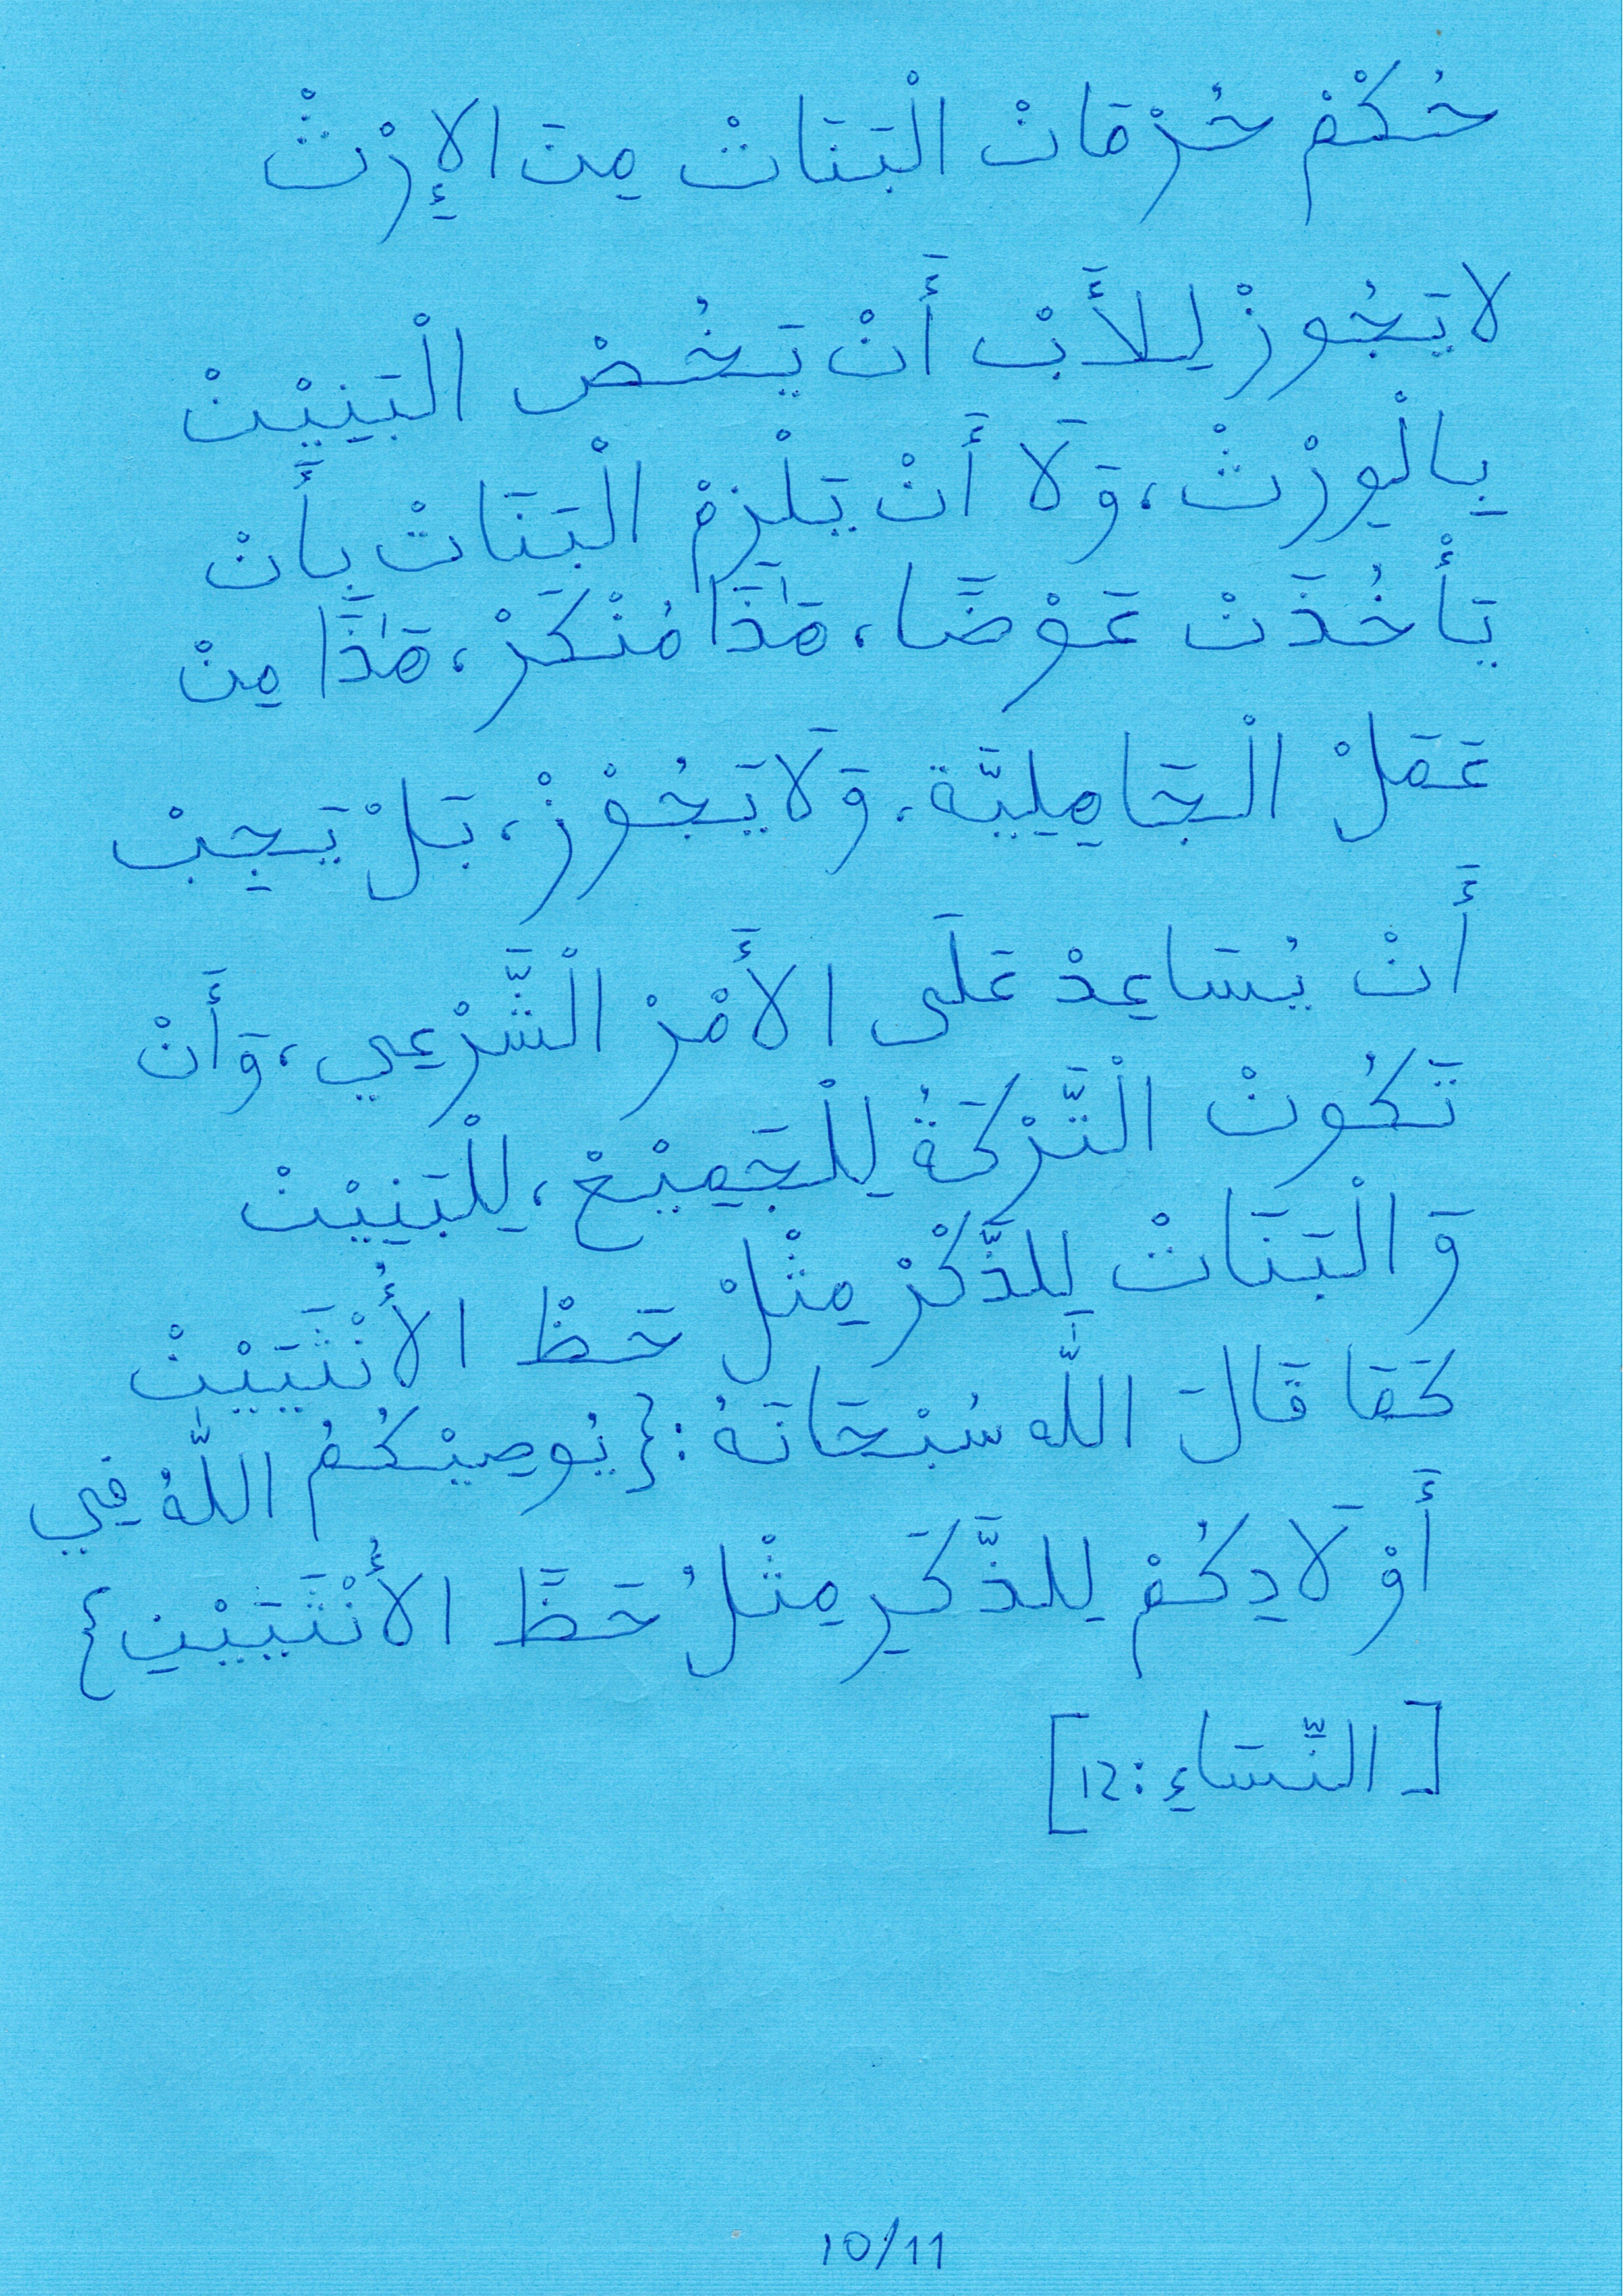 حُكْمْ حُرْمَانْ الْبَنَاتْ مِنَ الإِرْثْ
لا يَجُوزْ لِلأَبْ أَنْ يَخُصْ الْبَنِيْنْ
بِالْوِرْثْ، وَلَا أَنْ يَلْزِمْ الْبَنَاتْ بِأَنْ
يَأْخُذَنْ عَوْضًا، هَٰذَا مُنْكَرْ، هَٰذَا مِنْ
عَمَلْ الْجَاهِلِيَّة، وَلَا يَجُوْزْ، بَلْ يَجِبْ
أَنْ يُسَاعِدْ عَلَى الأَمْرْ الْشَّرْعِي، وَأَنْ
تَكُونْ الْتَّرْكَةُ لِلْجَمِيْعْ، لِلْبَنِيْنْ
وَالْبَنَاتْ لِلذَّكْرْ مِثْلْ حَظْ الأُنْثَيَيْنْ
كَمَا قَالَ اللّٰه سُبْحَانَهُ: {يُوصِيْكُمُ اللّٰهُ فِي
أَوْلَادِكُمْ لِلذَّكَرِ مِثْلُ حَظَّ الأُنْثَيَيْنِ}
[النِّسَاءِ: 12]
10/11